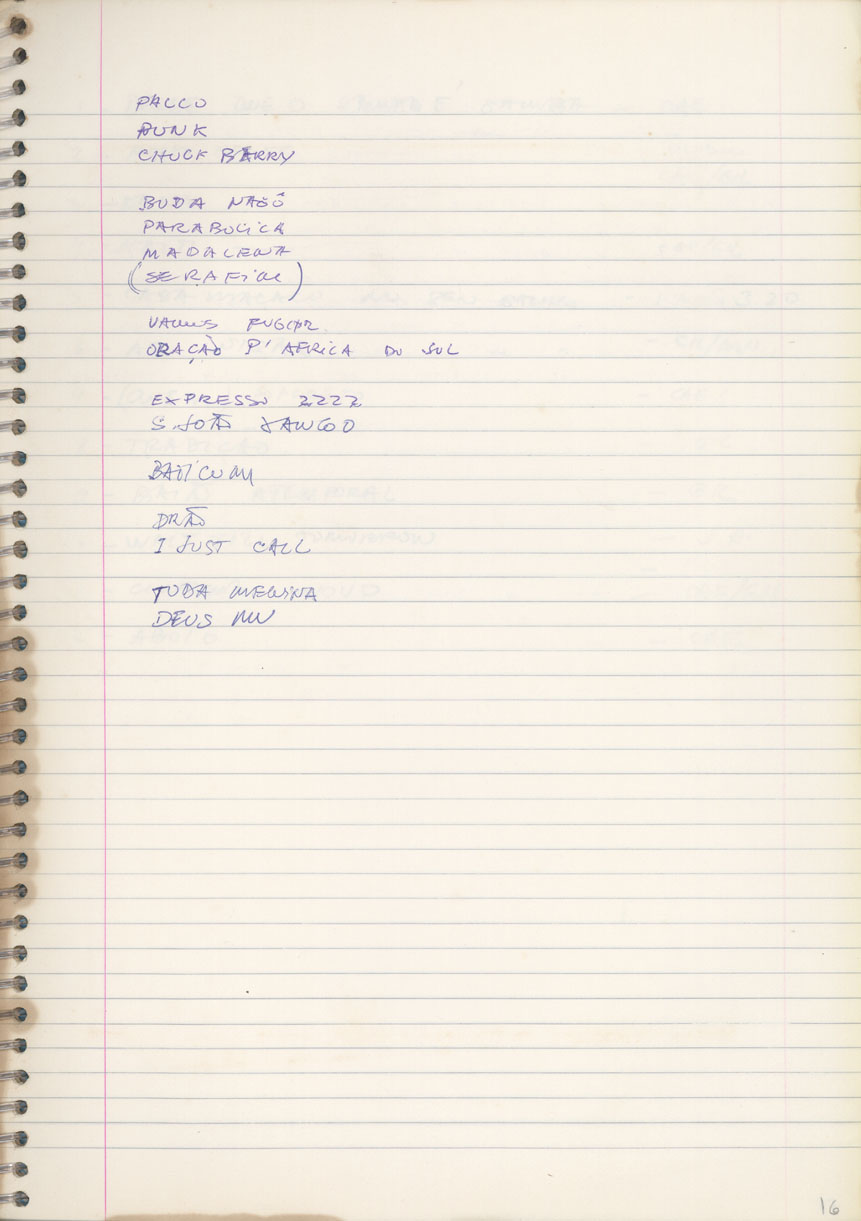 PALCO
PUNK
CHUCK BERRY
BUDA NAGÔ
PARABOLICA
MADALENA
(SERAFIM)
VAMOS FUGIR
ORAÇÃO P' AFRICA DO SUL
EXPRESSO 2222
S. JOÃO XANGO O
BATICUM
DRÃO
I JUST CALL
TODA MENINA
DEUS MU
16